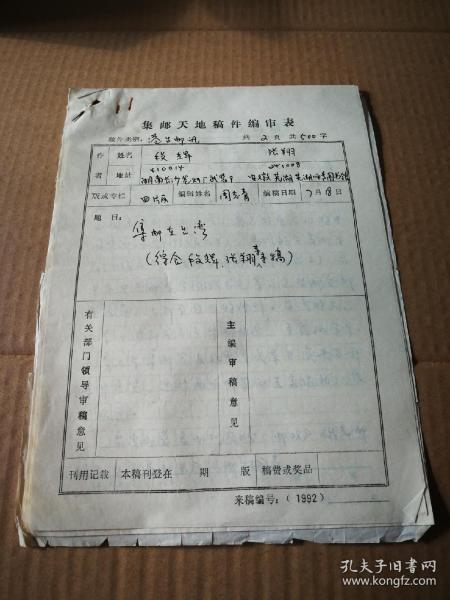 集邮天地稿件编审表
稿件类别：港台邮讯 共2页 共500字
作者 姓名 段辉 张翔
410014 241008
地址 湖南长沙
版或专栏 四版 编辑姓名 周志青 编稿日期 7月8日
题目：
集邮在台湾
（综合段辉、张翔来稿）
有关部门领导审稿意见
主编审稿意见
刊用记载 本稿刊登在 期 版 稿费或奖品
来稿编号：（1992）
孔夫子旧书网
www.kongfz.com